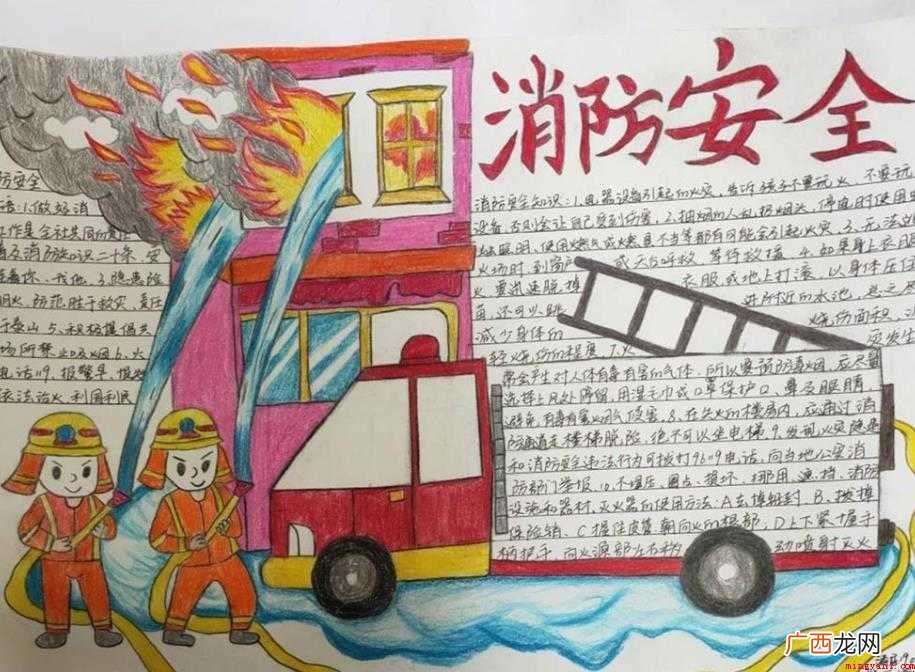 消防安全
防安全
语：1.做好消
工作是全社共同的责任
普及消防知识二十条 安
连着你、我他 3.隐患险
明火，防范胜于救灾，责任
于泰山 5.积极提倡
场所禁止吸烟 6.火
电话119，报警早、损失
依法治火 利国利民
消防安全知识：1.电器设备引起的火灾，告诉孩子不要玩火，不要玩
设备，否则会让自己受到伤害。2.抽烟的人乱扔烟头，
使用燃气或燃具不当等都有可能会引起火灾。3.无法
火场时，到窗户 或天台呼救，等待救援。4.如果身上衣服
火 要迅速脱掉 衣服或地上打滚，以身体压住
还可以跳 进附近的水池，总之尽
减少身体的 烧伤面积，
轻烧伤的程度。7.火
常会产生对人体有毒有害的气体，所以要预防毒烟，应尽量
选择上风处停留，用湿毛巾或口罩保护口、鼻及眼睛
避免有毒有害烟气侵害。8.在失火的楼房内，应通过消
防通道走楼梯脱险，绝不可以坐电梯。9.发现火灾隐患
和消防安全违法行为可拨打96119电话，向当地公安消
防部门举报。10.不埋压、圈占、损坏、挪用、遮挡、消防
设施和器材，灭火器的使用方法：A.去掉铅封，B.拔掉
保险销，C.握住皮管朝向火的根部，D.上下紧握手
柄把手，向火源部左右 动喷射灭火
广西龙网
mingyanfl.com